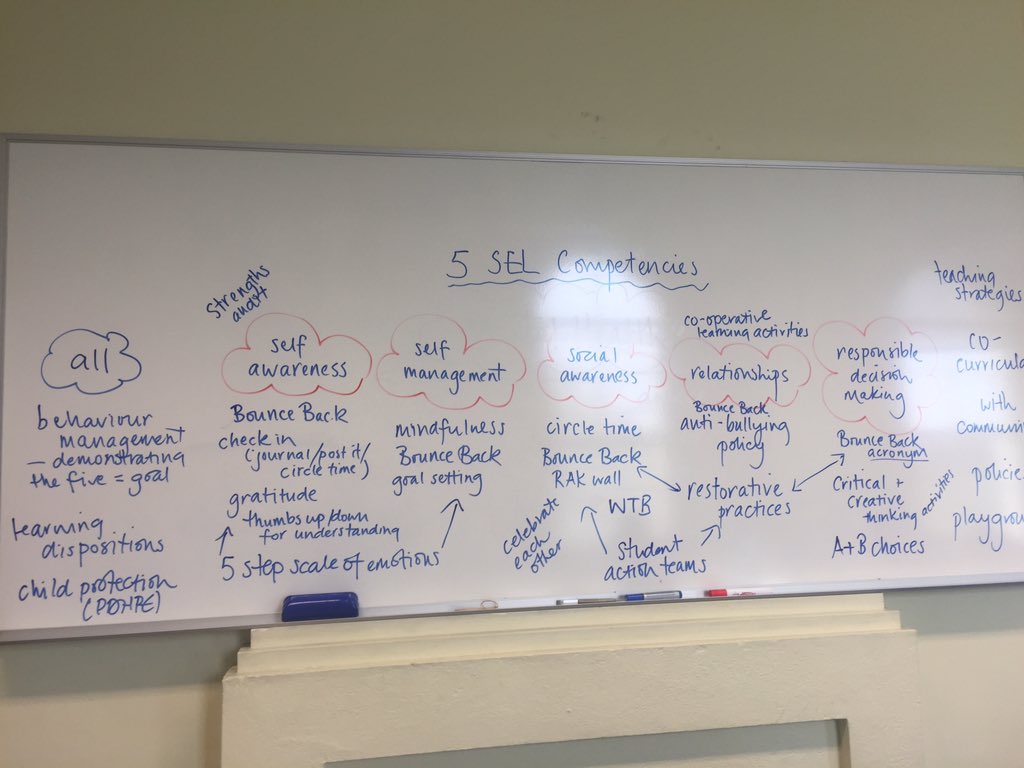 5 SEL Competencies
all
behaviour
management
- demonstrating
the five = goal
learning
dispositions
child protection
(PDHPE)
strengths
audit
self
awareness
Bounce Back
check in
(journal/post it/
circle time)
gratitude
thumbs up/down
for understanding
5 step scale of emotions
self
management
mindfulness
Bounce Back
goal setting
social
awareness
circle time
Bounce Back
RAK wall
WTB
celebrate
each
other
Student
action teams
co-operative
learning activities
relationships
Bounce Back
anti-bullying
policy
restorative
practices
responsible
decision
making
Bounce Back
acronym
Critical +
creative
thinking
activities
A+B choices
teaching
strategies
co-
curricula
with
communi
policie
playgrou